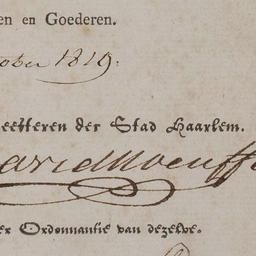 en en Goederen.
ober 1819.
eesteren der Stad Haarlem.
er Ordonnantie van dezelve.